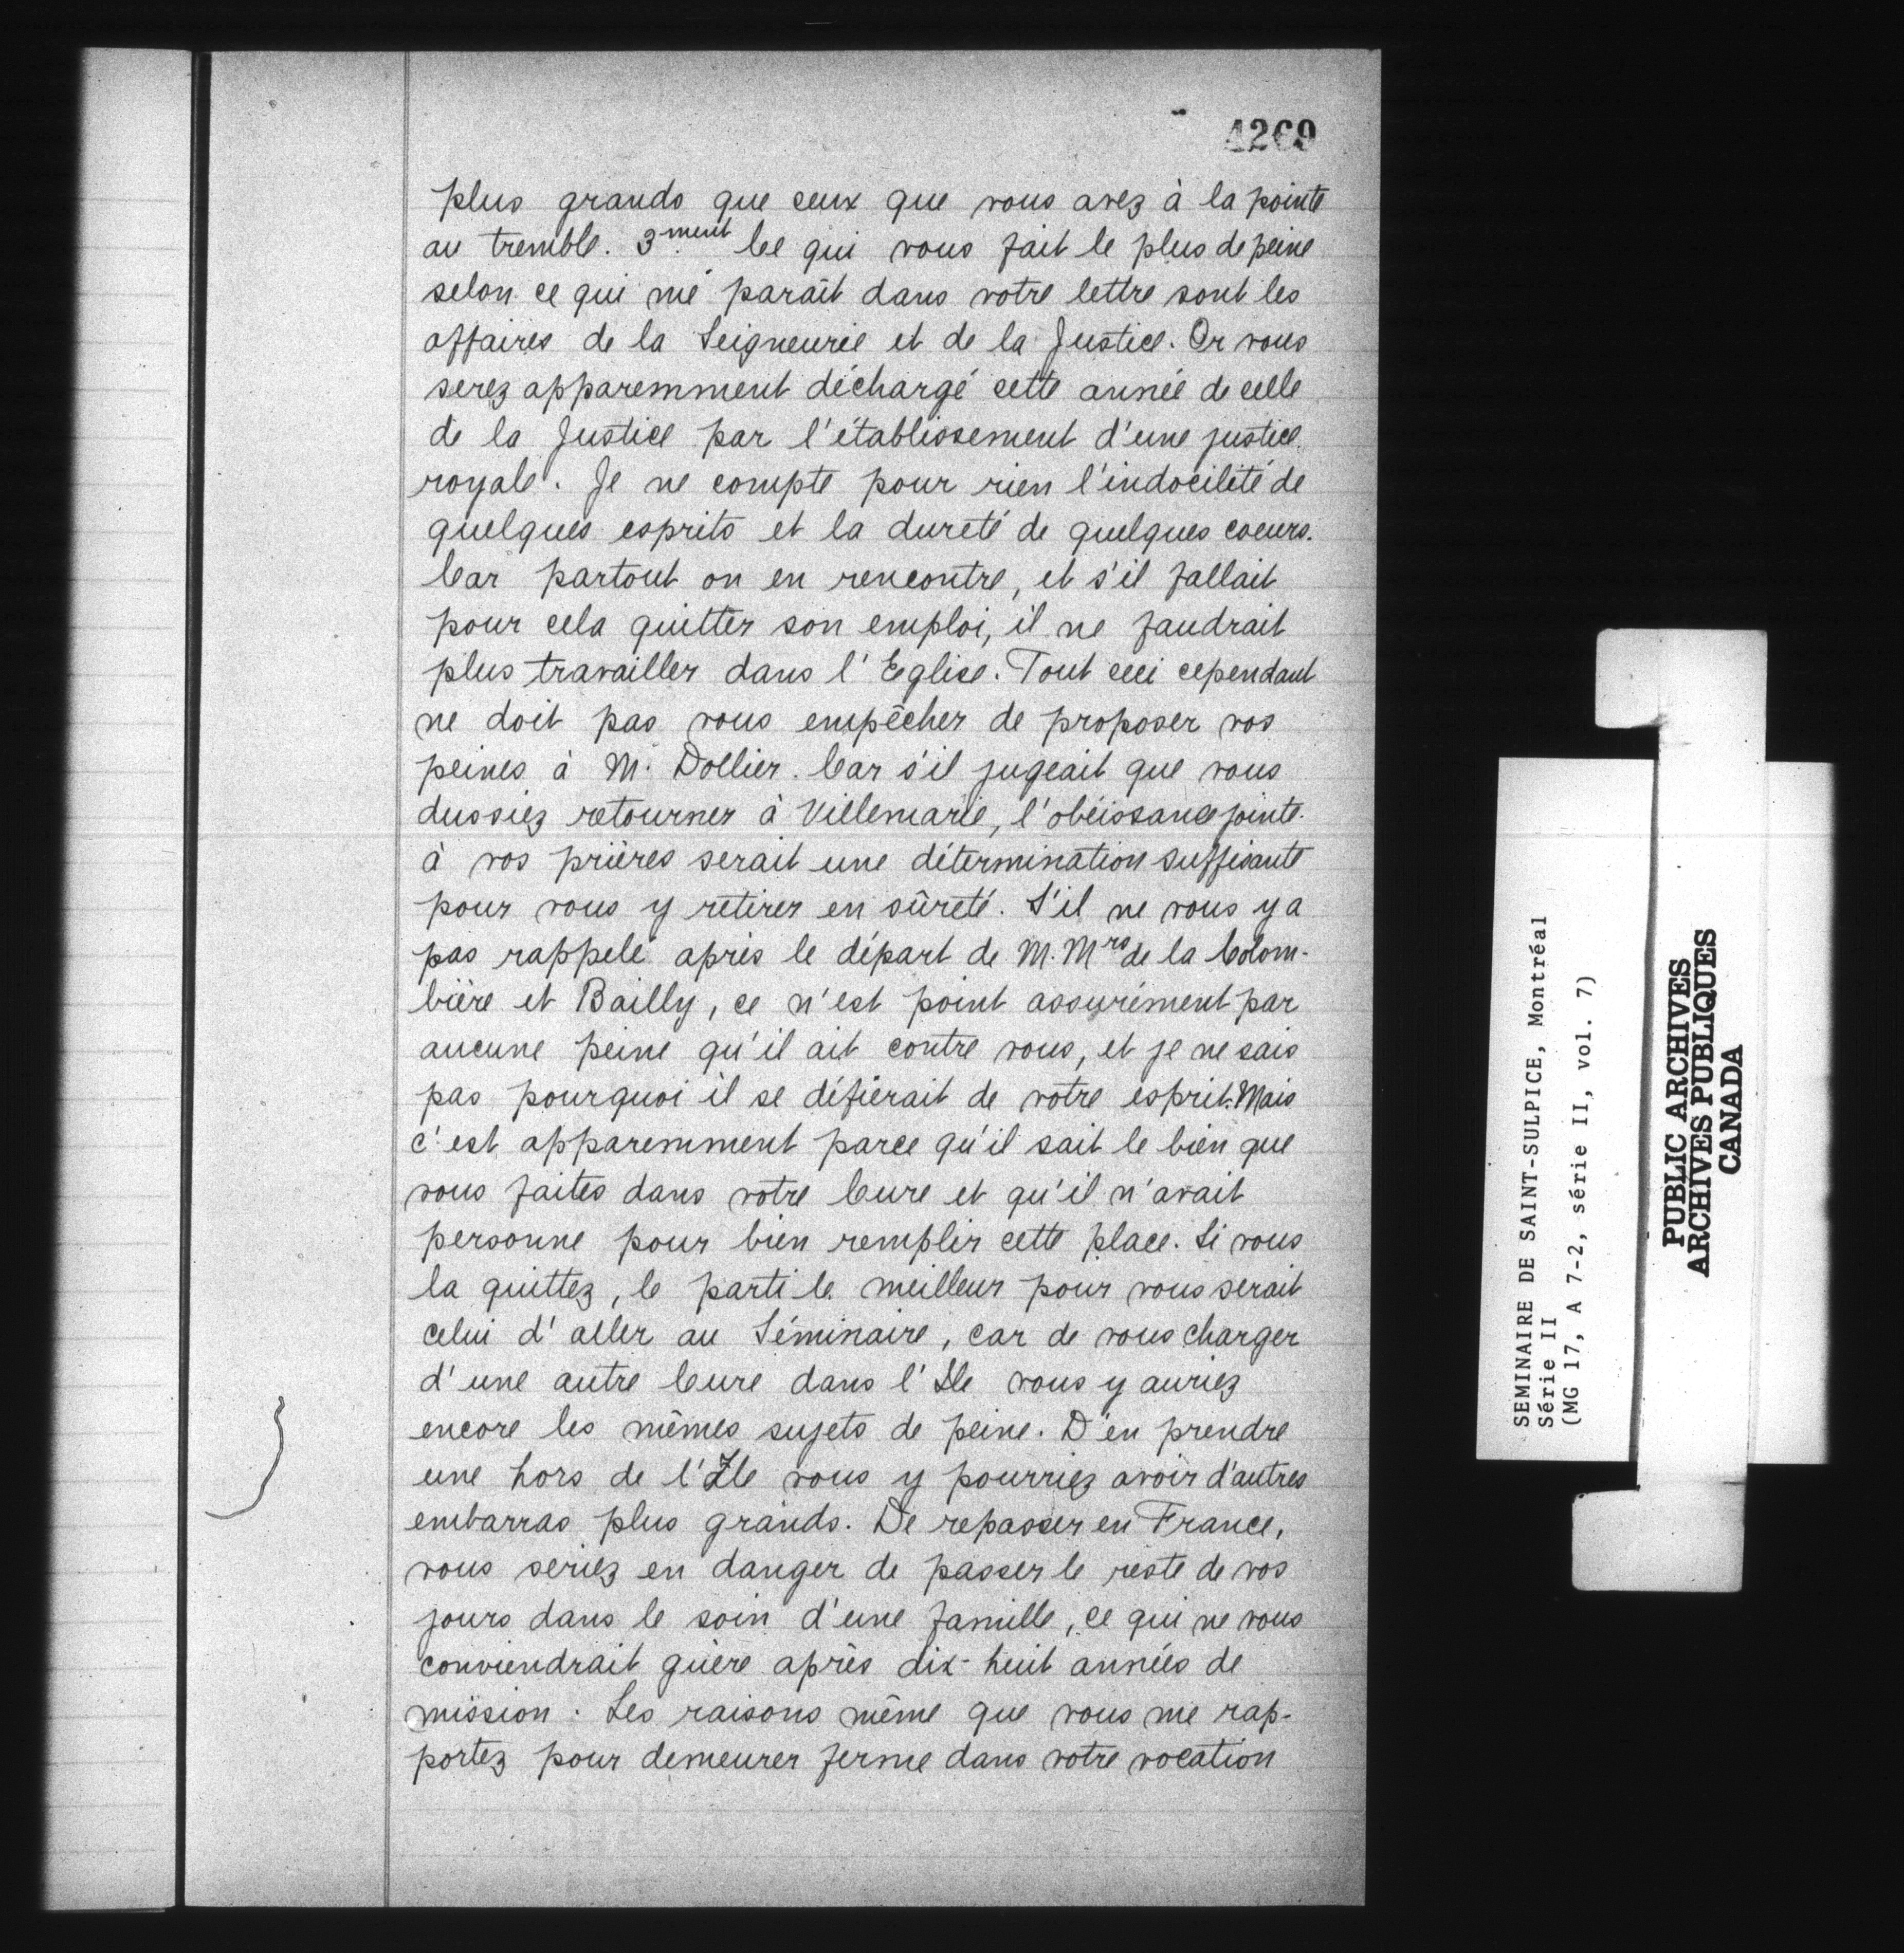 4269
plus grands que ceux que vous avez à la pointe
au tremble. 3.ment Ce qui vous fait le plus de peine
selon ce qui me paraît dans votre lettre sont les
affaires de la Seigneurie et de la Justice. Or vous
serez apparemment déchargé cette année de celle
de la Justice par l'établissement d'une justice
royale. Je ne compte pour rien l'indocilité de
quelques esprits et la dureté de quelques coeurs.
Car partout on en rencontre, et s'il fallait
pour cela quitter son emploi, il ne faudrait
plus travailler dans l'Eglise. Tout ceci cependant
ne doit pas vous empêcher de proposer vos
peines à M. Dollier. Car s'il jugeait que vous
dussiez retourner à Villemarie, l'obéissance jointe
à vos prières serait une détermination suffisante
pour vous y retirer en sûreté. S'il ne vous y a
pas rappelé après le départ de M.Mrs de la Colom-
bière et Bailly, ce n'est point assurément par
aucune peine qu'il ait contre vous, et je ne sais
pas pourquoi il se défierait de votre esprit. Mais
c'est apparemment parce qu'il sait le bien que
vous faites dans votre Cure et qu'il n'avait
personne pour bien remplir cette place. Si vous
la quittez, le parti le meilleur pour vous serait
celui d'aller au Séminaire, car de vous charger
d'une autre Cure dans l'Ile vous y auriez
encore les mêmes sujets de peine. D'en prendre
une hors de l'Ile vous y pourriez avoir d'autres
embarras plus grands. De repasser en France,
vous seriez en danger de passer le reste de vos
jours dans le soin d'une famille, ce qui ne vous
conviendrait guère après dix-huit années de
mission. Les raisons même que vous me rap-
portez pour demeurer ferme dans votre vocation
SEMINAIRE DE SAINT-SULPICE, Montréal
Série II
(MG 17, A 7-2, série II, vol. 7)
PUBLIC ARCHIVES
ARCHIVES PUBLIQUES
CANADA